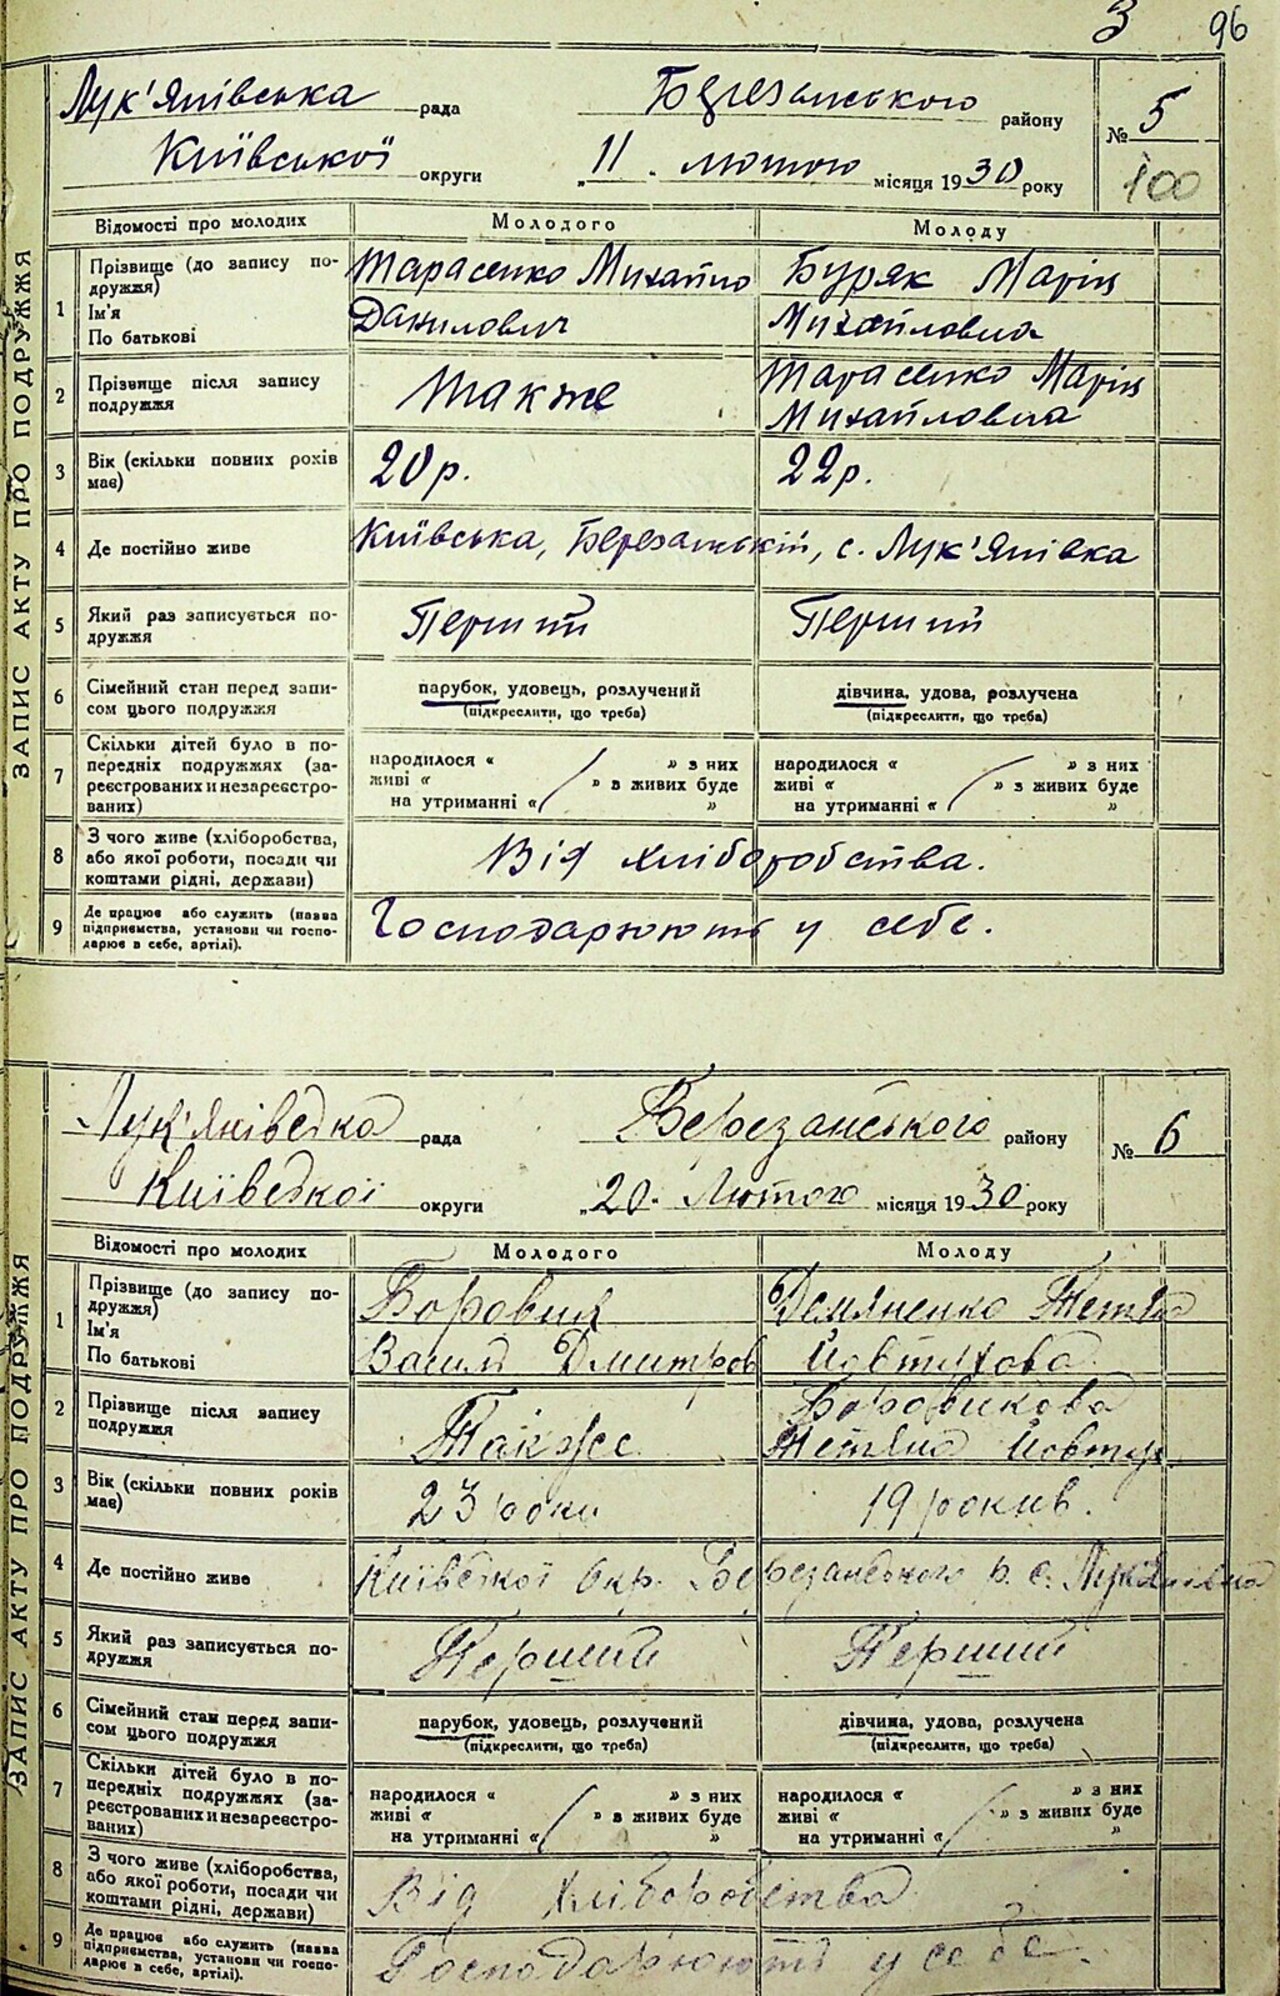 3 96
Лук'янівська рада Березанського району № 5
Київської округи „11„ лютого місяця 1930 року 100
ЗАПИС АКТУ ПРО ПОДРУЖЖЯ
Відомості про молодих Молодого Молоду
1 Прізвище (до запису подружжя) Тарасенко Михайло Буряк Марія
Ім'я
По батькові Данилович Михайловна
2 Прізвище після запису подружжя Также Тарасенко Марія
Михайловна
3 Вік (скільки повних рохів має) 20 р. 22 р.
4 Де постійно живе Київська, Березанський, с. Лук'янівка
5 Який раз записується подружжя Перший Перший
6 Сімейний стан перед записом цього подружжя парубок, удовець, розлучений дівчина, удова, розлучена
(підкреслити, що треба) (підкреслити, що треба)
7 Скільки дітей було в попередніх подружжях (зареєстрованих и незареєстрованих) народилося „ „ з них народилося „ „ з них
живі „ „ з живих буде живі „ „ з живих буде
на утриманні „ „ на утриманні „ „
8 З чого живе (хліборобства, або якої роботи, посади чи коштами рідні, держави) Від хліборобства.
9 Де працює або служить (назва підприємства, установи чи господарює в себе, артілі). Господарюють у себе.
Лук'янівська рада Березанського району № 6
Київської округи „20„ Лютого місяця 1930 року
ЗАПИС АКТУ ПРО ПОДРУЖЖЯ
Відомості про молодих Молодого Молоду
1 Прізвище (до запису подружжя) Боровик Демяненко Тетяна
Ім'я
По батькові Василь Дмитров Йовтухова
2 Прізвище після запису подружжя Также Боровикова
Тетяна Йовтух
3 Вік (скільки повних років має) 23 роки 19 рокив.
4 Де постійно живе Київської окр. Березанського р. с. Лукянівка
5 Який раз записується подружжя Перший Перший
6 Сімейний стан перед записом цього подружжя парубок, удовець, розлучений дівчина, удова, розлучена
(підкреслити, що треба) (підкреслити, що треба)
7 Скільки дітей було в попередніх подружжях (зареєстрованих и незареєстрованих) народилося „ „ з них народилося „ „ з них
живі „ „ з живих буде живі „ „ з живих буде
на утриманні „ „ на утриманні „ „
8 З чого живе (хліборобства, або якої роботи, посади чи коштами рідні, держави) Від хліборобства
9 Де працює або служить (назва підприємства, установи чи господарює в себе, артілі). Господарюють у себе.